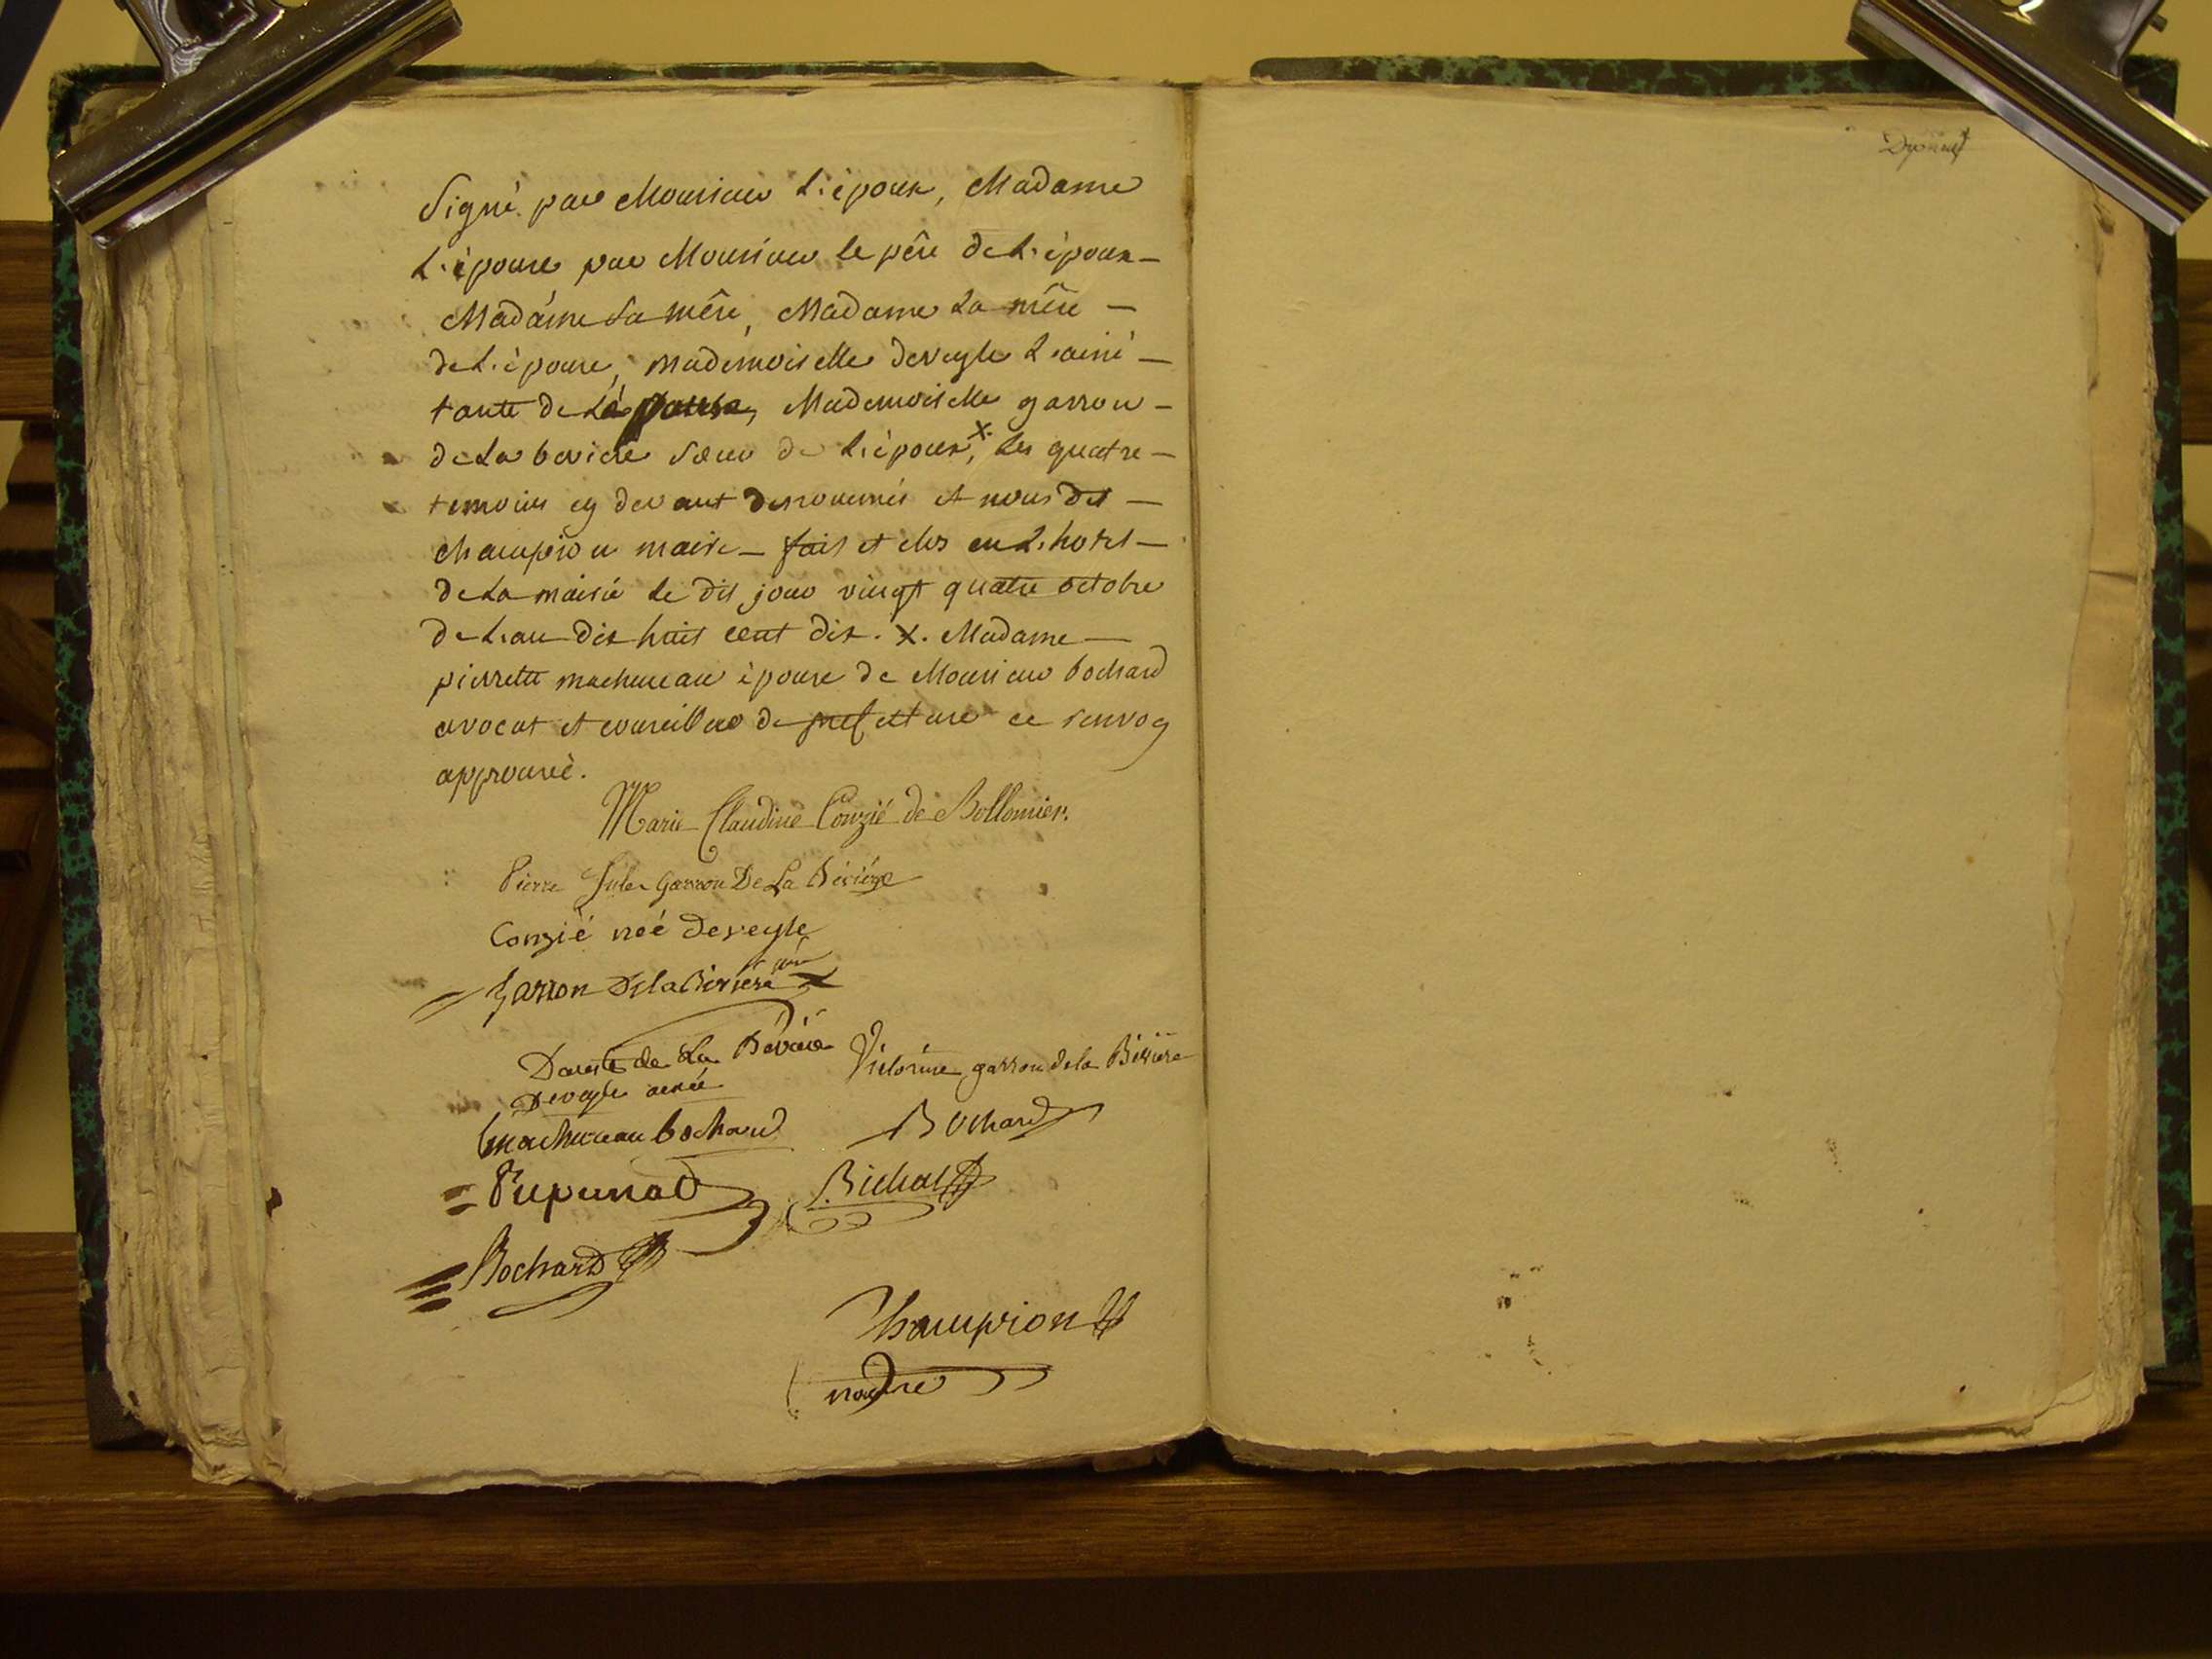 Signé par Monsieur L'époux, Madame
L'épouse par Monsieur le père de L'époux —
Madame sa mêre, Madame La mêre —
de L'épouse, mademoiselle deveyle L'ainé —
tante de Lépouse, Mademoiselle garron —
de La beviere sœur de L'époux, X. Les quatre —
temoins cy devant denommés et nous dit —
champion maire — fait et clos en L'hotel —
de La mairie le dit jour vingt quatre octobre
de L'an dix huit cent dix. X. Madame —
pierrette machureau épouse de Monsieur bochard
avocat et conseiller de prefecture ce renvoy
approuvé.
Marie Claudine Conzié de Bollomier.
Pierre Jules Garron De La Bévière
Conzié née deveyle
Garron De la Bévière
Dareste de La Bévière Victorine garron de la Bévière
Deveyle ainée
machureau bochard Bochard
Pupunat Bichat
Bochard
Champion
maire